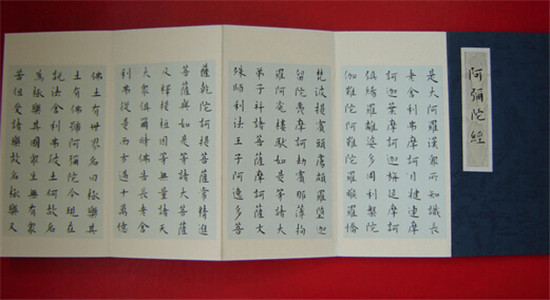 阿彌陀經
是大阿羅漢眾所知識長
老舍利弗摩訶目犍連摩
訶迦葉摩訶迦旃延摩訶
俱絺羅離婆多周利槃陀
伽難陀阿難陀羅睺羅憍
梵波提賓頭盧頗羅墮迦
留陀夷摩訶劫賓那薄拘
羅阿㝹樓馱如是等諸大
弟子并諸菩薩摩訶薩文
殊師利法王子阿逸多菩
薩乾陀訶提菩薩常精進
菩薩與如是等諸大菩薩
及釋提桓因等無量諸天
大眾俱爾時佛告長老舍
利弗從是西方過十萬億
佛土有世界名曰極樂其
土有佛號阿彌陀今現在
說法舍利弗彼土何故名
為極樂其國眾生無有眾
苦但受諸樂故名極樂又